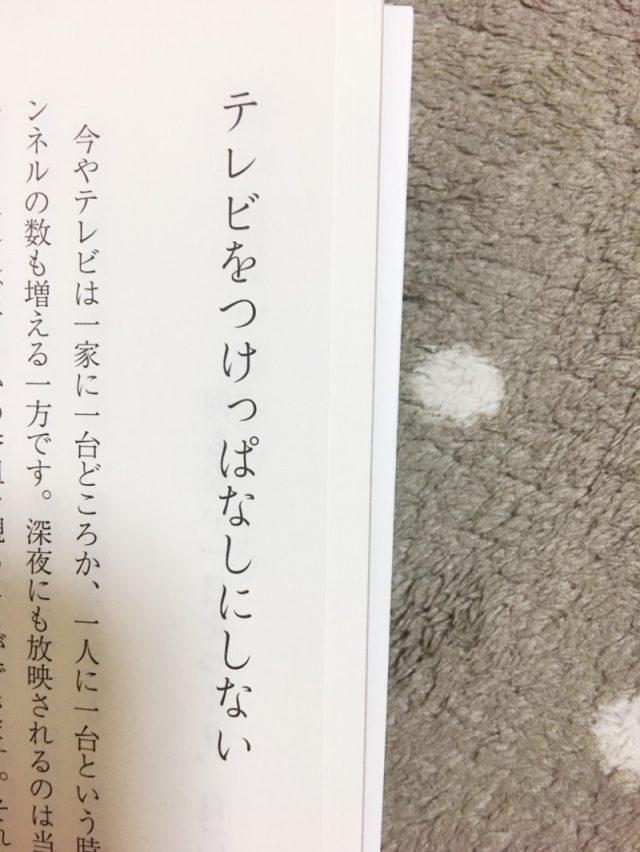 テレビをつけっぱなしにしない
今やテレビは一家に一台どころか、一人に一台という時
ンネルの数も増える一方です。深夜にも放映されるのは当